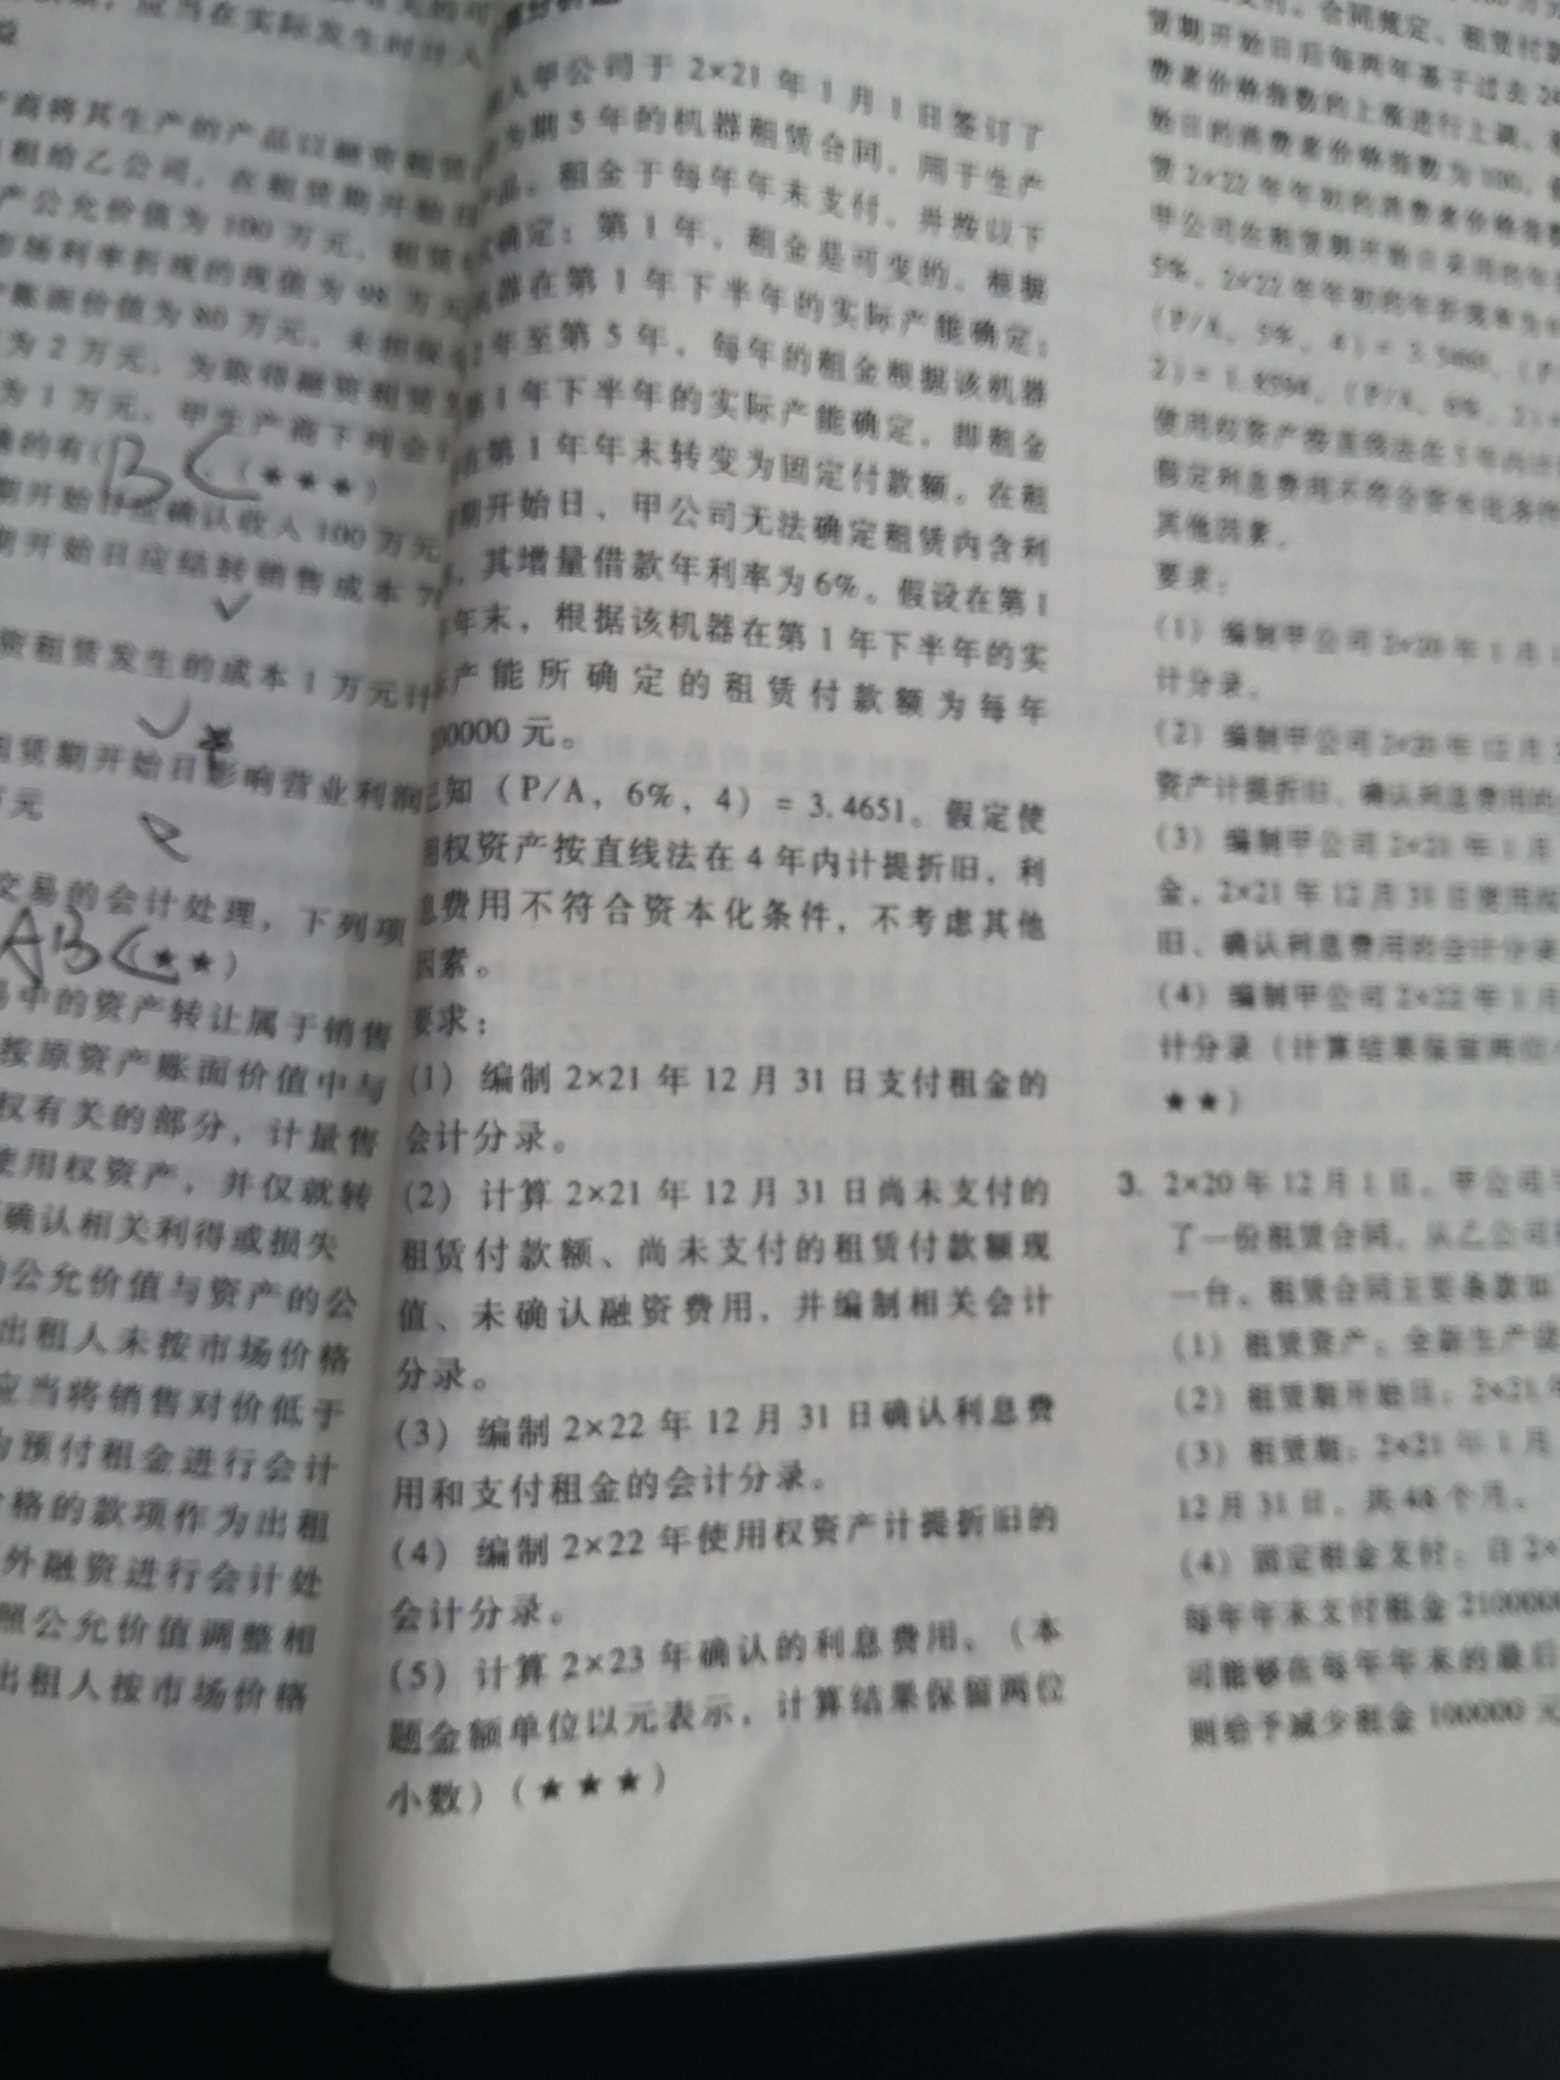 应当在实际发生时计入
商将其生产的产品以融资租赁
租给乙公司，在租赁期开始日
产公允价值为100万元，租赁
市场利率折现的现值为98万元
账面价值为80万元，未担保
为2万元，为取得融资租赁
为1万元，甲生产商下列会计
确的有(BC(★★★)
期开始日应确认收入100万元
期开始日应结转销售成本
资租赁发生的成本1万元计
租赁期开始日影响营业利润
万元
交易的会计处理，下列项
ABC(★★)
易中的资产转让属于销售
按原资产账面价值中与
权有关的部分，计量售
使用权资产，并仅就转
确认相关利得或损失
公允价值与资产的公
出租人未按市场价格
应当将销售对价低于
为预付租金进行会计
价格的款项作为出租
外融资进行会计处
照公允价值调整相
出租人按市场价格
人甲公司于2×21年1月1日签订了
为期5年的机器租赁合同，用于生产
品。租金于每年年末支付，并按以下
确定：第1年，租金是可变的，根据
器在第1年下半年的实际产能确定；
2年至第5年，每年的租金根据该机器
第1年下半年的实际产能确定，即租金
在第1年年末转变为固定付款额。在租
期开始日，甲公司无法确定租赁内含利
，其增量借款年利率为6%。假设在第1
年末，根据该机器在第1年下半年的实
产能所确定的租赁付款额为每年
00000元。
已知（P/A，6%，4）=3.4651。假定使
用权资产按直线法在4年内计提折旧，利
息费用不符合资本化条件，不考虑其他
因素。
要求：
(1）编制2×21年12月31日支付租金的
会计分录。
(2）计算2×21年12月31日尚未支付的
租赁付款额、尚未支付的租赁付款额现
值、未确认融资费用，并编制相关会计
分录。
(3）编制2×22年12月31日确认利息费
用和支付租金的会计分录。
(4）编制2×22年使用权资产计提折旧的
会计分录。
(5）计算2×23年确认的利息费用。（本
题金额单位以元表示，计算结果保留两位
小数）（★★★）
合同规定，租赁付款
赁期开始日后每两年基于过去24
费者价格指数的上涨进行上调。
始日的消费者价格指数为100，
赁2×22年年初的消费者价格指数
甲公司在租赁期开始日采用的年
5%，2×22年年初的年折现率为
(P/A，5%，4）=3.5460，（P
使用权资产按直线法在5年内计
假定利息费用不符合资本化条件
其他因素。
要求：
(1）编制甲公司2×20年1月
计分录。
(2）编制甲公司2×20年12月
资产计提折旧、确认利息费用的
(3）编制甲公司2×21年1月
金，2×21年12月31日使用权
旧、确认利息费用的会计分录
(4）编制甲公司2×22年1月
计分录（计算结果保留两位
★★）
3. 2×20年12月1日，甲公司
了一份租赁合同，从乙公司
一台。租赁合同主要条款如
(1）租赁资产：全新生产设
(2）租赁期开始日：2×21年
(3）租赁期：2×21年1月
12月31日，共48个月。
(4）固定租金支付：自2×
每年年末支付租金2100000
司能够在每年年末的最后
则给予减少租金100000元